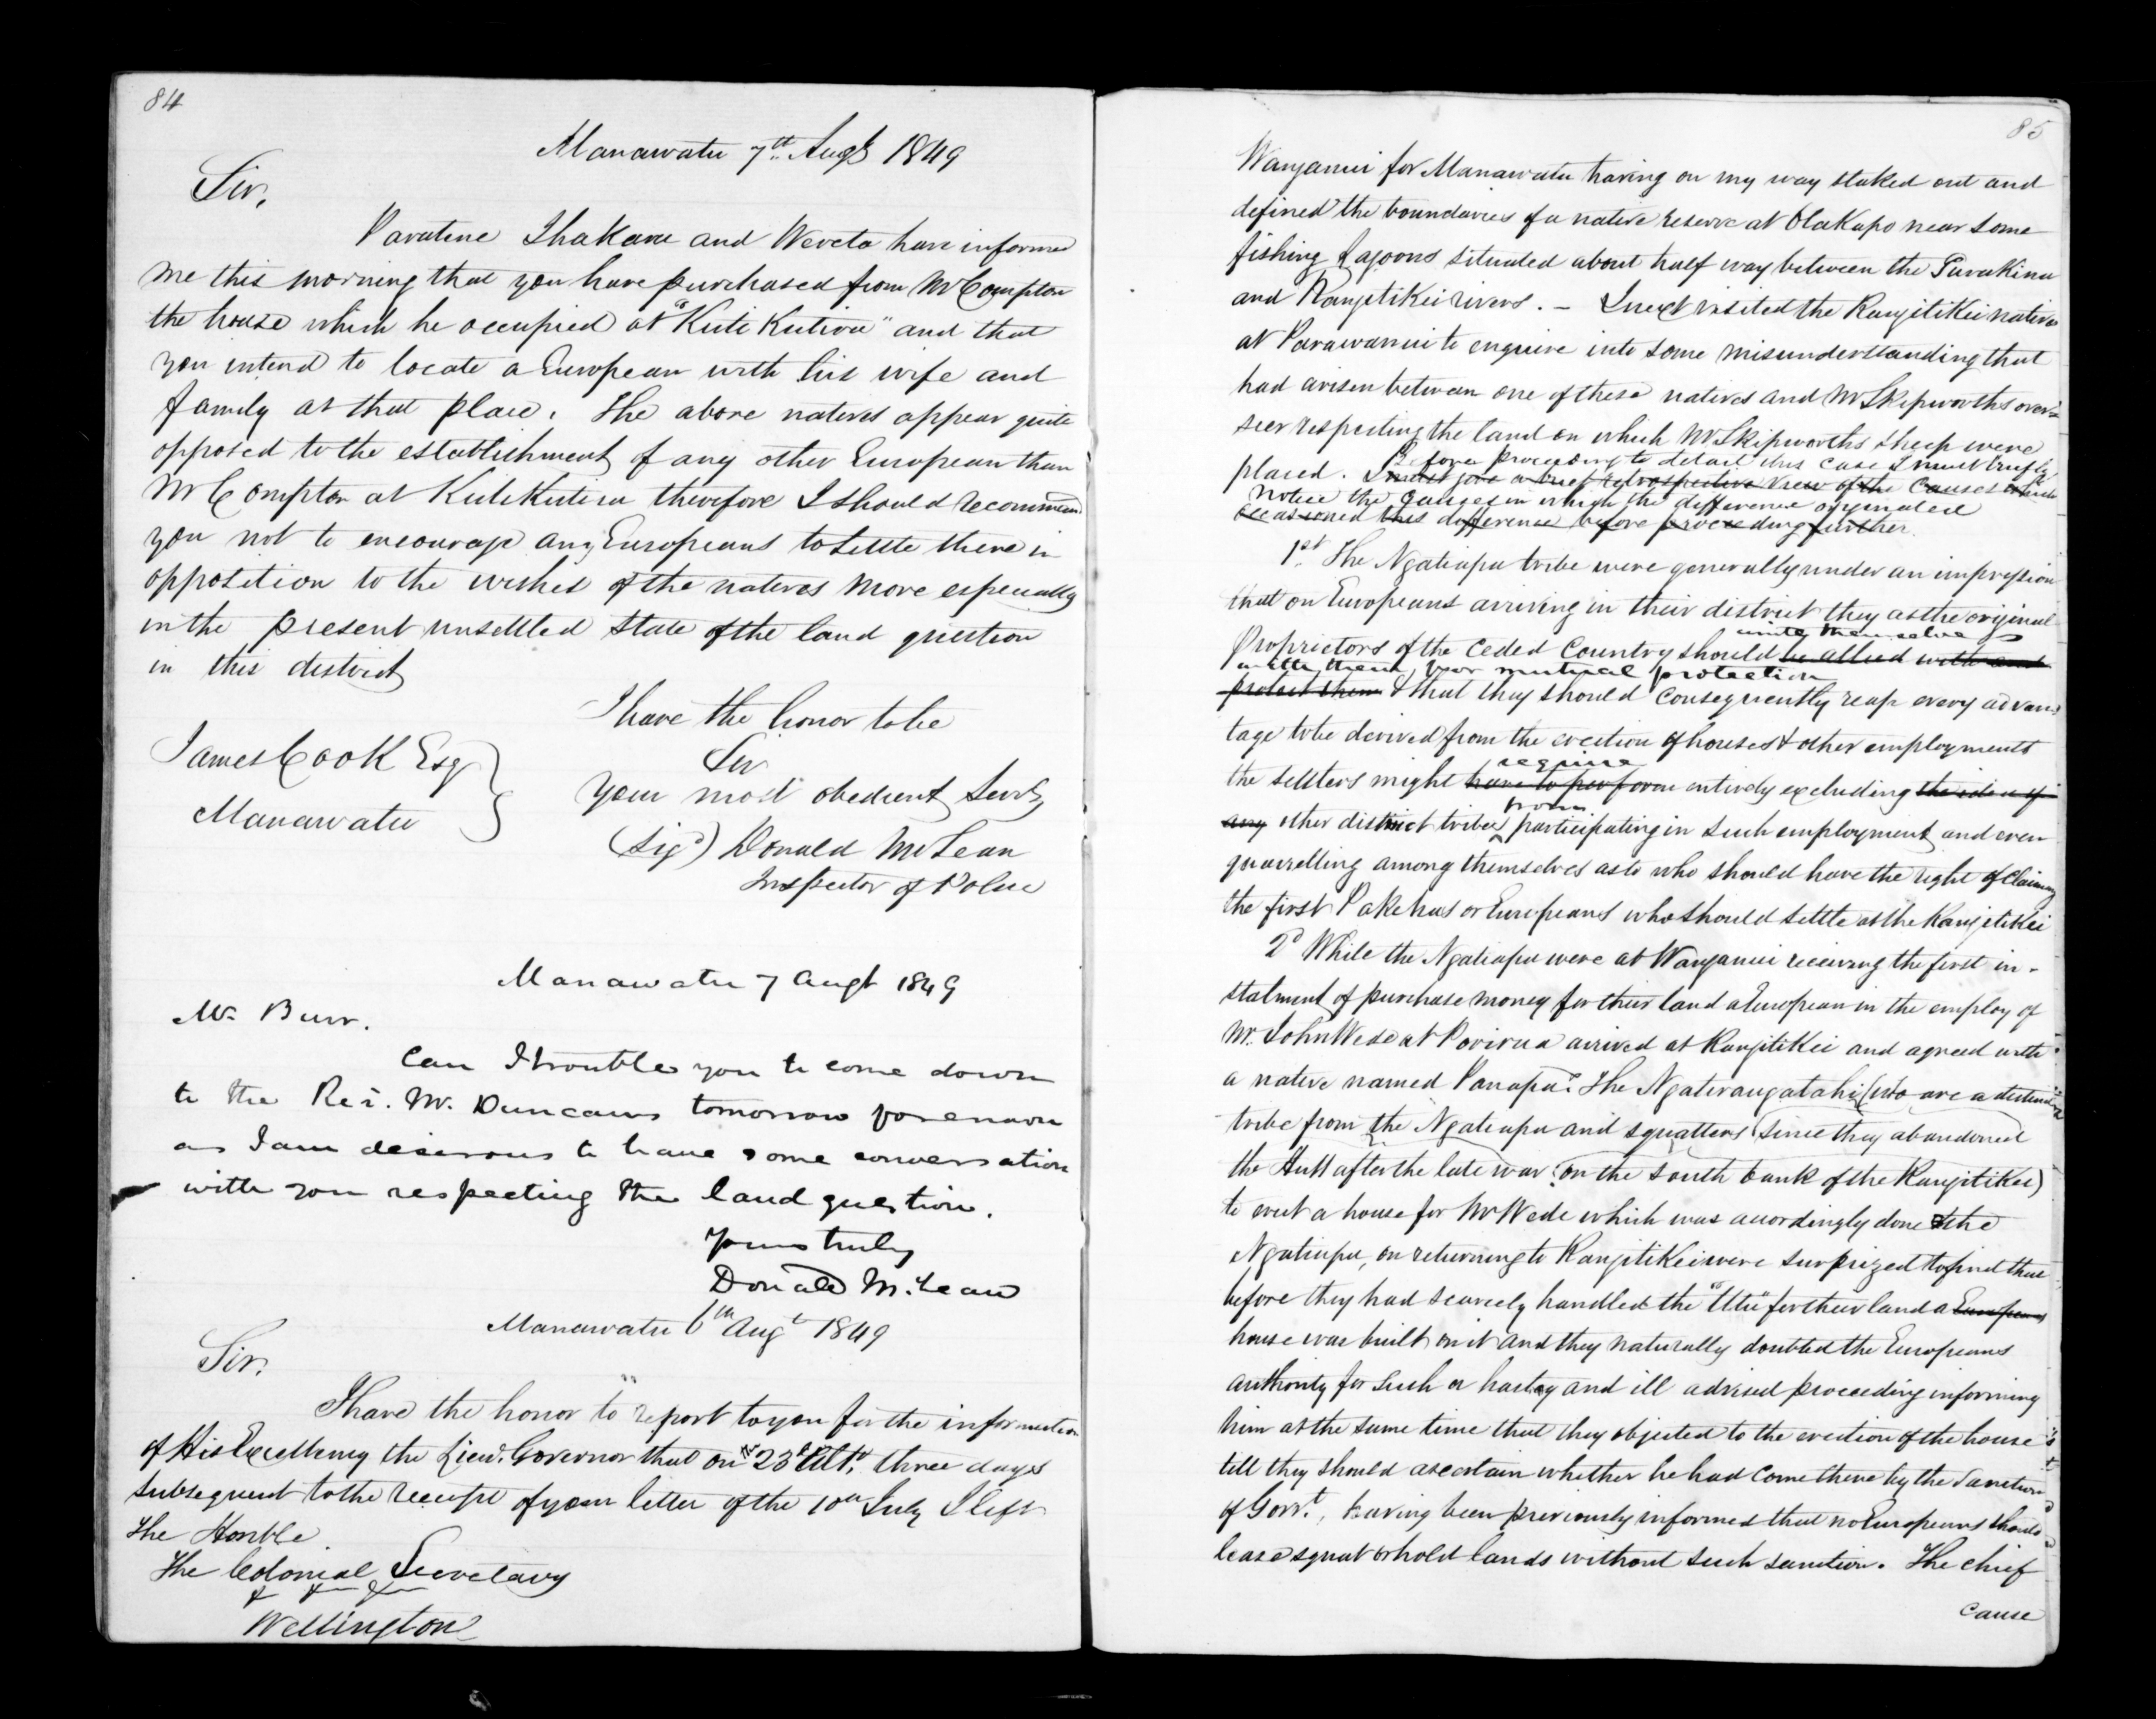 84
Manawatu 7th Augt 1849
Sir,
Paratene Ihakara and Wereta have informed
me this morning that you have purchased from Mr Compton
the house which he occupied at "Kuti Kutira" and that
you intend to locate a European with his wife and
family at that place. The above natives appear quite
opposed to the establishment of any other European than
Mr Compton at KutiKutira therefore I should recommend
you not to encourage any Europeans to settle there in
opposition to the wishes of the natives more especially
in the present unsettled state of the land question
in this district
I have the honor to be
Sir
James Cook Esq
Manawatu
Your most obedient Servt
(Sigd) Donald McLean
Inspector of Police
Manawatu 7 Augt 1849
Mr Burr.
Can I trouble you to come down
to the Rev. Mr. Duncans tomorrow forenoon
as I am desirous to have some conversation
with you respecting the land question.
Yours truly
Donald McLean
Manawatu 6th Augt 1849
Sir.
I have the honor to report to you for the information
of His Excellency the Lieut. Governor that on 23d Ult. three days
subsequent to the receipt of your letter of the 10th July I left
The Honble.
The Colonial Secretary
Wellington
85
Wanganui for Manawatu having on my way staked out and
defined the boundaries of a native reserve at Otakapo near some
fishing Lagoons situated about half way between the Turakina
and Rangitikei rivers. - I next visited the Rangitikei natives
at Parawanui to enquire into some misunderstanding that
had arisen between one of these natives and Mr Skipworths over-
seer respecting the land on which Mr Skipworths sheep were
Before proceeding to detail this case I must briefly
placed. I must give a brief retrospective view of the causes which
notice the causes in which the difference originated
occasioned this difference before proceeding further.
1st. The Ngatiapa tribe were generally under an impression
that on Europeans arriving in their district they as the original
unite themselves
Proprietors of the ceded Country should be allied with and
with them for mutual protection
protect them & that they should consequently reap every advan-
tage to be derived from the erection of houses & other employments
require
the settlers might have to perform entirely excluding the idea of
from
any other district tribes participating in such employment and even
quarrelling among themselves as to who should have the right of claiming
the first Pakehas or Europeans who should settle at the Rangitikei
2d While the Ngatiapa were at Wanganui receiving the first in-
stalment of purchase money for their land a European in the employ of
Mr. John Wede at Porirua arrived at Rangitikei and agreed with
a native named Panapa. The Ngatirangatahi (who are a distinct
tribe from the Ngatiapa and squatters since they abandoned
the Hutt after the late war on the south bank of the Rangitikei)
to erect a house for Mr Wede which was accordingly done & the
Ngatiapa, on returning to Rangitikei were surprized to find that
before they had scarcely handled the "Utu" for their land a European
house was built on it and they naturally doubted the Europeans
authority for such a hasty and ill advised proceeding informing
him at the same time that they objected to the erection of the house
till they should ascertain whether he had come there by the sanction
of Govt., having been previously informed that no Europeans should
lease squat or hold lands without such sanction. The chief
cause